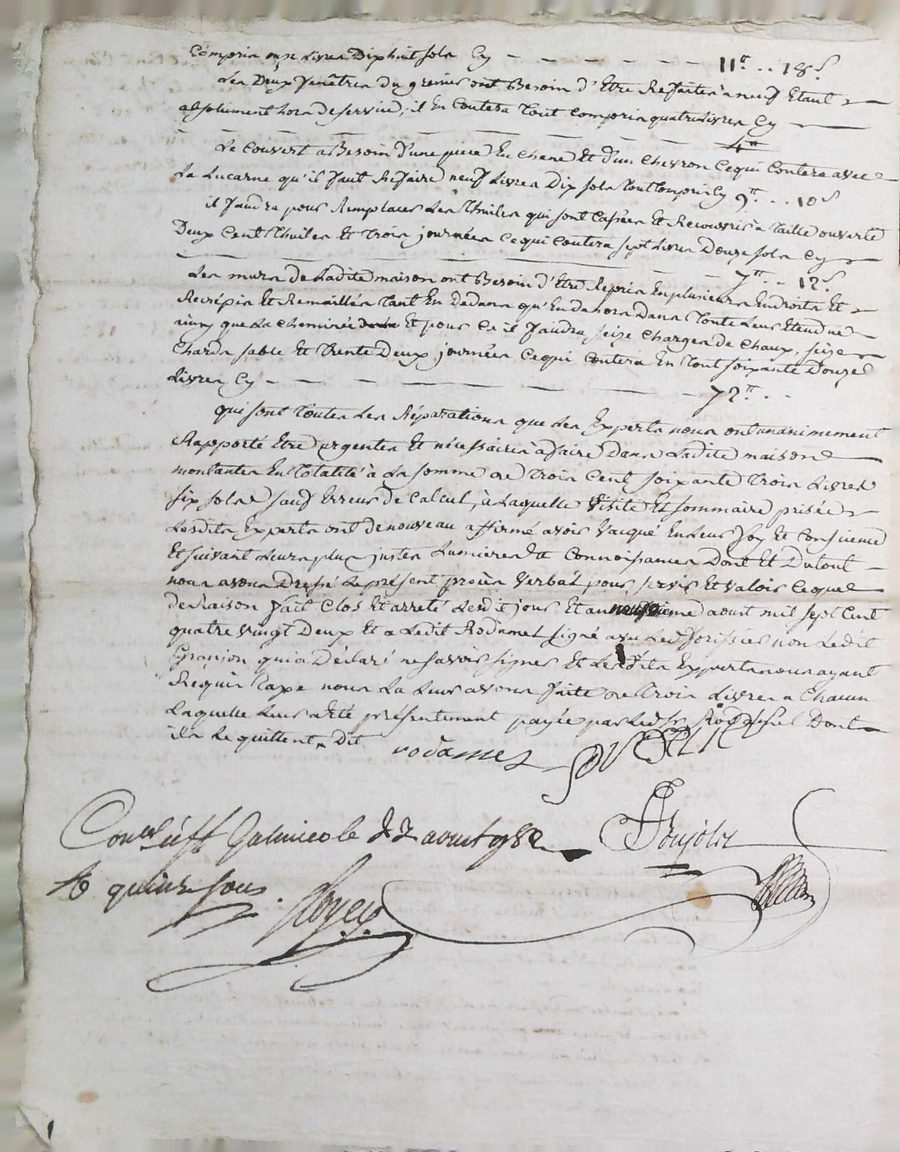 Compris onze Livres Dixhuit sols Cy - - - - - - - 11tt .. 18s
Les Deux fenêtres du grenier ont Besoin d'Etre Refaites a neuf Etant
absolument hors de service, il En Coutera Tout Compris quatre Livres Cy
4tt
Le Couvert a Besoin d'une piece En Chane Et d'un Chevron Ce qui Coutera avec
La Lucarne qu'il faut Refaire neuf Livres Dix sols Tout Compris Cy 9tt .. 10s
il faudra pour Remplacer Les Thuiles qui sont Cassées Et Recouvrir a Taille ouverte
Deux Cent Thuiles Et Trois journées Ce qui Coutera sept Livres Douze sols Cy
7tt .. 12s
Les murs de Ladite maison ont Besoin d'Etre Repris En plusieurs Endroits Et
Recrépis Et Remaillés Tant En Dedans qu'En dehors dans Toute Leur Etendue
ainsy que La Cheminée Et pour Ce il faudra seize Charges de Chaux, seize
Chards sable Et Trente Deux journées Ce qui Coutera En Tout soixante Douze
Livres Cy - - - - - - - 72tt ..
qui sont Toutes Les Réparations que Les Experts nous ont unanimement
Rapporté Etre urgentes Et nécessaires a faire Dans Ladite maison
montantes En Totalité à La somme de Trois Cent soixante Trois Livres
six sols sauf Erreur de Calcul, à Laquelle Visite Et sommaire prisée
Lesdits Experts ont de nouveau affirmé avoir Vacqué En Leur foy Et Conscience
Et suivant Leurs plus justes Lumieres Et Connoissances Dont Et Du tout
nous avons Dressé Le présent procès Verbal pour servir Et valoir Ce que
de Raison fait Clos Et arreté Lesdit jour Et an aoust mil sept Cent
quatre vingt Deux Et a Ledit Rodamel signé avec Led forissier non Ledit
Granjon qui a Déclaré ne savoir signer Et Lesdits Experts nous ayant
Requis Taxe nous La Leur avons faite de Trois Livres a Chacun
Laquelle Leur a été présentement payée par Led Sr Rodamel Dont
ils Le quittent Dit rodamel
Conlé à St Galmier le 22 aoust 1782
Rc quinze sous